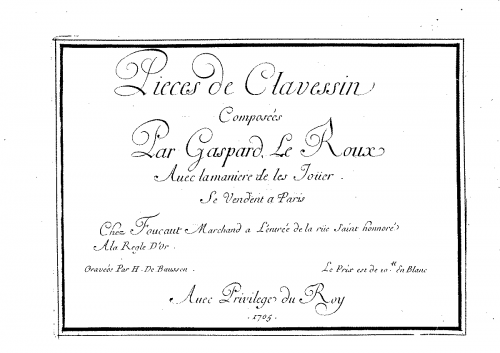 Pieces de Clavessin
Composeés
Par Gaspard Le Roux
Auec lamaniere de les Joüer.
Se Vendent a Paris
Chez Foucaut Marchand a L'entrée de la rüe Saint honnoré
A la Regle D'Or.
Graveés Par H. De Baussen.
Le Prix est de 10.tt en Blanc
Auec Privilege du Roy
.1705.